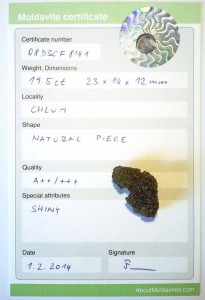 Moldavite certificate
Certificate number
Weight, Dimensions
19.5ct 23 × 14 × 12mm
Locality
CHLUM
Shape
NATURAL PIECE
Quality
A++/+++
Special attributes
SHINY
Date
Signature
1.2.2014
AboutMoldavites.com